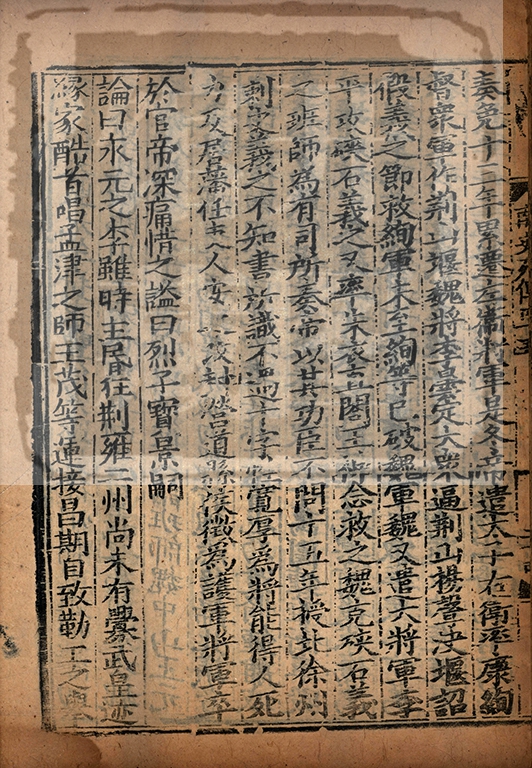 奏免十三年累遷左衛將軍是冬帝遣太子右衛率康絢
督衆軍作荆山堰魏將李曇定大衆逼荆山揚聲決堰詔
假義之節救絢軍未至絢等已破魏軍魏又遣大將軍李
平攻硤石義之又率朱衣直閤王神念救之魏克硤石義
之班師為有司所奏帝以其功臣不問十五年授北徐州
刺史義之不知書所識不過十字性寛厚為將能得人死
力及居藩任吏人安之改封營道縣侯徵為護軍將軍卒
於官帝深痛惜之謚曰烈子寶景嗣
論曰永元之季雖時主昏狂荆雍二州尚未有釁武皇迹
緣家酷首唱孟津之師王茂等運接昌期自致勤王之舉